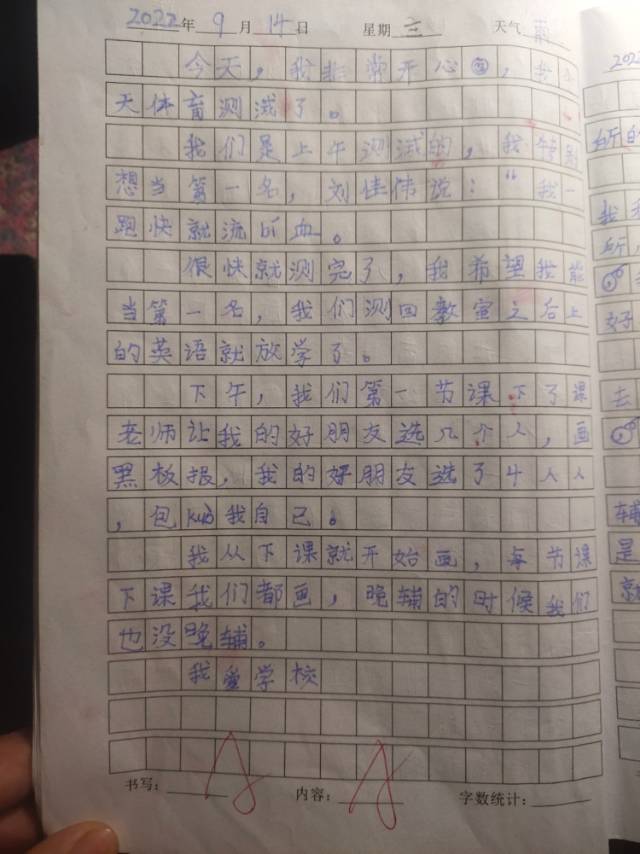 2022年 9月 14日 星期 三 天气 雨
今天，我非常开心，我今
天体育测试了。
我们是上午测试的，我特别
想当第一名，刘佳伟说："我一
跑快就流bí血。
很快就测完了，我希望我能
当第一名，我们测回教室之后上
的英语就放学了。
下午，我们第一节课下了课
老师让我的好朋友选几个人，画
黑板报，我的好朋友选了4人人
，包kuò我自己。
我从下课就开始画，每节课
下课我们都画，晚辅的时候我们
也没晚辅。
我爱学校
书写： 内容： 字数统计：
202
所的
我
所
好
去
辅
是
就